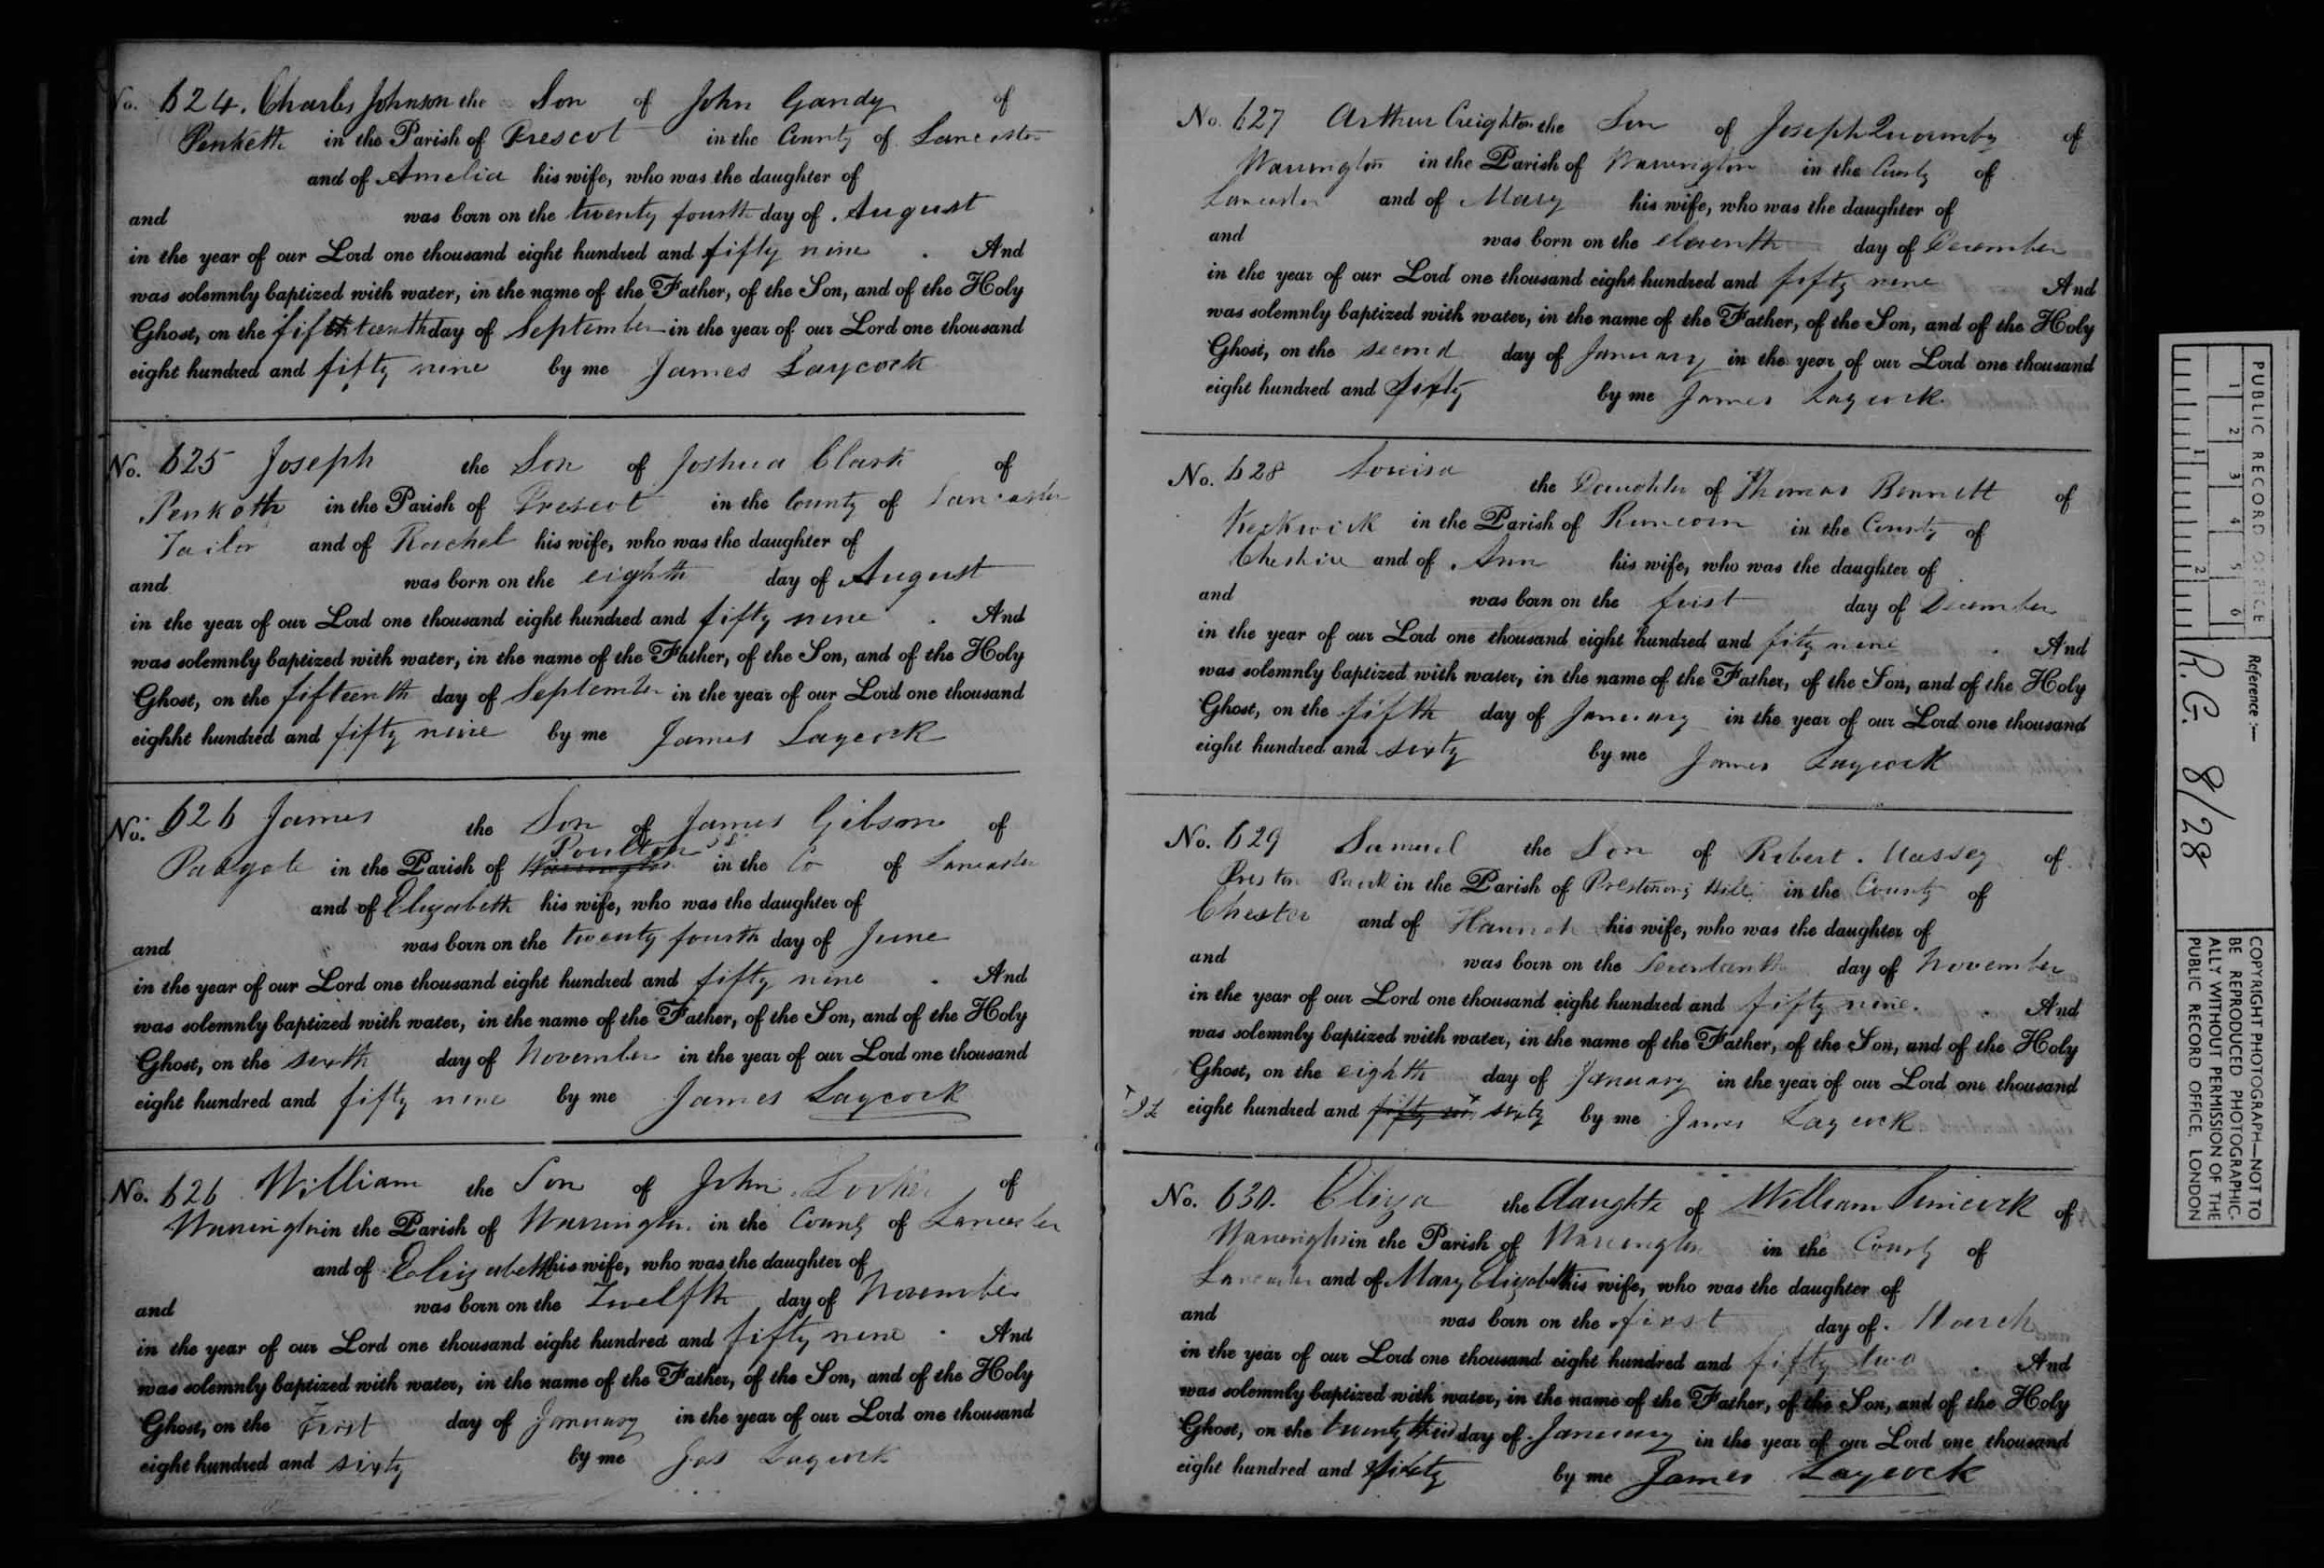 No. 624. Charles Johnson the Son of John Gandy of
Penketh in the Parish of Prescot in the County of Lancaster
and of Amelia his wife, who was the daughter of
and was born on the twenty fourth day of August
in the year of our Lord one thousand eight hundred and fifty nine . And
was solemnly baptized with water, in the name of the Father, of the Son, and of the Holy
Ghost, on the fifteenth day of September in the year of our Lord one thousand
eight hundred and fifty nine by me James Laycock
No. 625 Joseph the Son of Joshua Clark of
Penketh in the Parish of Prescot in the County of Lancaster
Tailor and of Rachel his wife, who was the daughter of
and was born on the eighth day of August
in the year of our Lord one thousand eight hundred and fifty nine . And
was solemnly baptized with water, in the name of the Father, of the Son, and of the Holy
Ghost, on the fifteenth day of September in the year of our Lord one thousand
eighht hundred and fifty nine by me James Laycock
No. 626 James the Son of James Gibson of
Poulton
Padgate in the Parish of Warrington in the Co of Lancaster
and of Elizabeth his wife, who was the daughter of
and was born on the twenty fourth day of June
in the year of our Lord one thousand eight hundred and fifty nine . And
was solemnly baptized with water, in the name of the Father, of the Son, and of the Holy
Ghost, on the sixth day of November in the year of our Lord one thousand
eight hundred and fifty nine by me James Laycock
No. 626 William the Son of John of
Warrington in the Parish of Warrington in the County of Lancaster
and of Elizabeth his wife, who was the daughter of
and was born on the Twelfth day of November
in the year of our Lord one thousand eight hundred and fifty nine . And
was solemnly baptized with water, in the name of the Father, of the Son, and of the Holy
Ghost, on the First day of January in the year of our Lord one thousand
eight hundred and sixty by me Jas Laycock
No. 627 Arthur Creighton the Son of Joseph Quarmby of
Warrington in the Parish of Warrington in the County of
Lancaster and of Mary his wife, who was the daughter of
and was born on the eleventh day of December
in the year of our Lord one thousand eight hundred and fifty nine And
was solemnly baptized with water, in the name of the Father, of the Son, and of the Holy
Ghost, on the second day of January in the year of our Lord one thousand
eight hundred and sixty by me James Laycock
No. 628 Louisa the Daughter of Thomas Bennett of
Keckwick in the Parish of Runcorn in the County of
Cheshire and of Ann his wife, who was the daughter of
and was born on the first day of December
in the year of our Lord one thousand eight hundred and fifty nine . And
was solemnly baptized with water, in the name of the Father, of the Son, and of the Holy
Ghost, on the fifth day of January in the year of our Lord one thousand
eight hundred and sixty by me James Laycock
No. 629 Samuel the Son of Robert Massey of
Preston in the Parish of Hill in the County of
Chester and of Hannah his wife, who was the daughter of
and was born on the day of November
in the year of our Lord one thousand eight hundred and fifty nine. . And
was solemnly baptized with water, in the name of the Father, of the Son, and of the Holy
Ghost, on the eighth day of January in the year of our Lord one thousand
eight hundred and sixty by me James Laycock
No. 630. Eliza the daughte of William Pinicock of
Warrington in the Parish of Warrington in the County of
Lancaster and of Mary Elizabeth his wife, who was the daughter of
and was born on the first day of March
in the year of our Lord one thousand eight hundred and fifty two . And
was solemnly baptized with water, in the name of the Father, of the Son, and of the Holy
Ghost, on the twenty third day of January in the year of our Lord one thousand
eight hundred and sixty by me James Laycock
PUBLIC RECORD OFFICE
1 2 3 4 5 6
1 2
Reference :-
R.G. 8/28
COPYRIGHT PHOTOGRAPH—NOT TO
BE REPRODUCED PHOTOGRAPHIC-
ALLY WITHOUT PERMISSION OF THE
PUBLIC RECORD OFFICE, LONDON